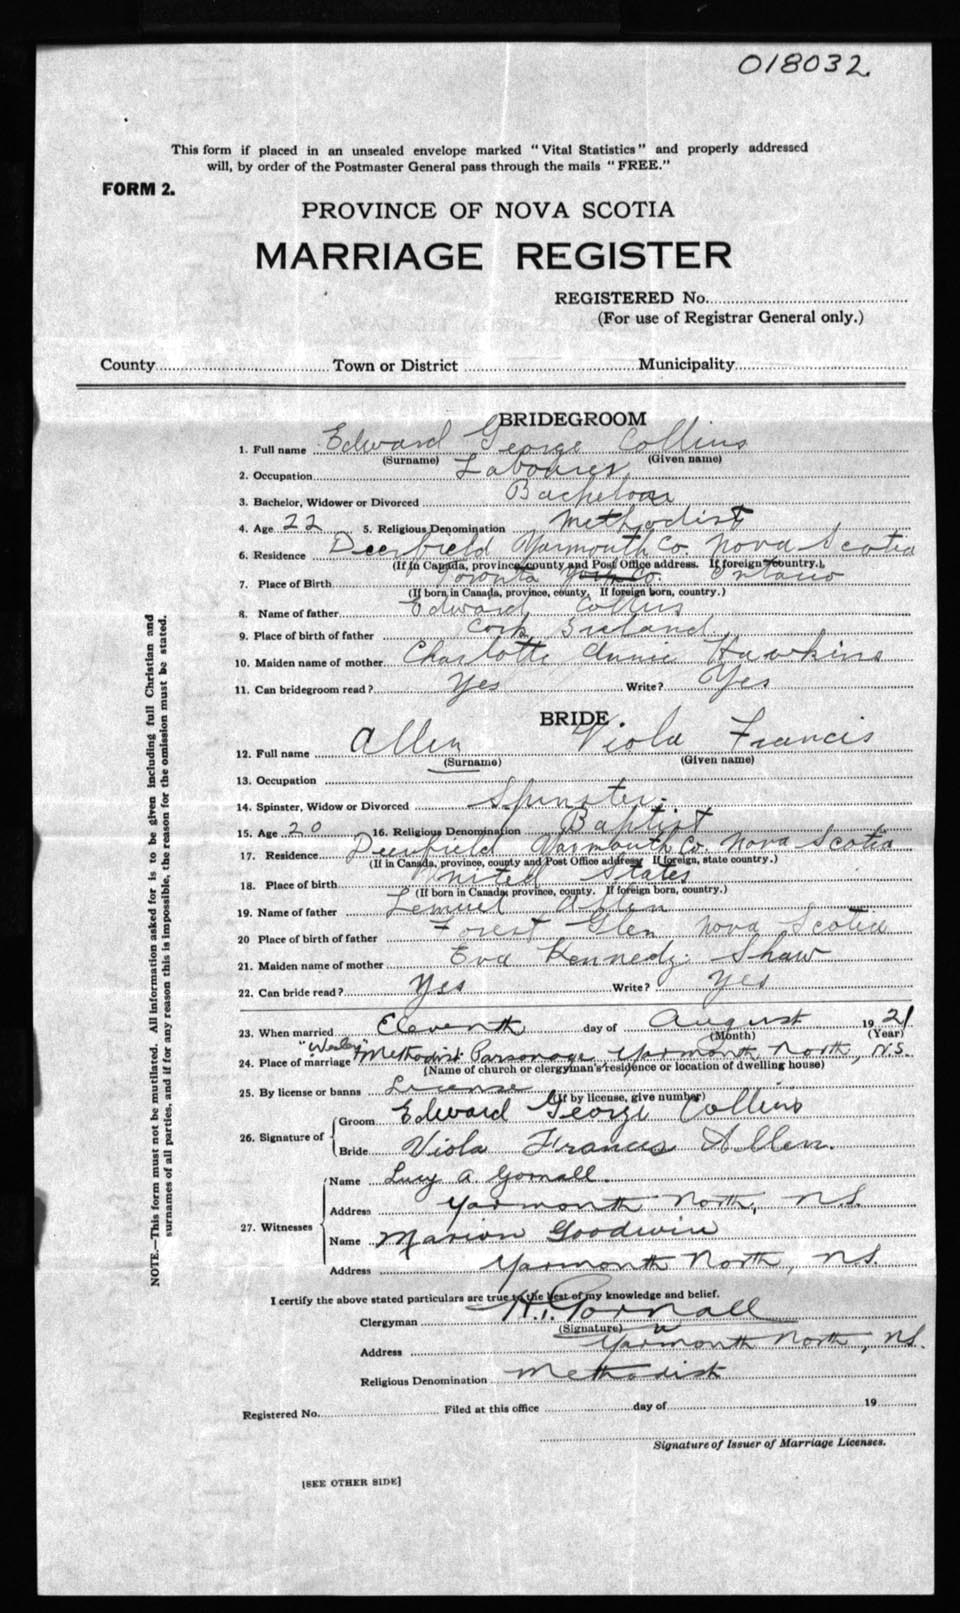 018032.
This form if placed in an unsealed envelope marked "Vital Statistics" and properly addressed
will, by order of the Postmaster General pass through the mails "FREE."
FORM 2.
PROVINCE OF NOVA SCOTIA
MARRIAGE REGISTER
REGISTERED No.
(For use of Registrar General only.)
County Town or District Municipality
BRIDEGROOM
1. Full name Edward George Collins
(Surname) (Given name)
2. Occupation Labourer
3. Bachelor, Widower or Divorced Bachelor
4. Age 22 5. Religious Denomination Methodist
6. Residence Deerfield Yarmouth Co. Nova Scotia
(If in Canada, province, county and Post Office address. If foreign country.)
7. Place of Birth Toronto York Co. Ontario
(If born in Canada, province, county. If foreign born, country.)
8. Name of father Edward Collins
9. Place of birth of father Cork Ireland
10. Maiden name of mother Charlotte Annie Hawkins
11. Can bridegroom read? Yes Write? Yes
BRIDE.
12. Full name Allen Viola Francis
(Surname) (Given name)
13. Occupation
14. Spinster, Widow or Divorced Spinster
15. Age 20 16. Religious Denomination Baptist
17. Residence Deerfield Yarmouth Co. Nova Scotia
(If in Canada, province, county and Post Office address If foreign, state country.)
18. Place of birth United States
(If born in Canada, province, county. If foreign born, country.)
19. Name of father Lemuel Allen
20 Place of birth of father Forest Glen Nova Scotia
21. Maiden name of mother Eva Kennedy Shaw
22. Can bride read? Yes Write? Yes
23. When married Eleventh day of August 1921
(Month) (Year)
"Wesley"
24. Place of marriage Methodist Parsonage Yarmouth North, N.S.
(Name of church or clergyman's residence or location of dwelling house)
25. By license or banns License
(If by license, give number)
26. Signature of Groom Edward George Collins
Bride Viola Francis Allen.
27. Witnesses Name Lucy A. Gornall.
Address Yarmouth North, N.S.
Name Marion Goodwin
Address Yarmouth North, N.S.
I certify the above stated particulars are true to the best of my knowledge and belief.
Clergyman Gornall
(Signature)
Address Yarmouth North, N.S.
Religious Denomination Methodist
Registered No. Filed at this office day of 19
Signature of Issuer of Marriage Licenses.
[SEE OTHER SIDE]
NOTE.—This form must not be mutilated. All information asked for is to be given including full Christian and
surnames of all parties, and if for any reason this is impossible, the reason for the omission must be stated.